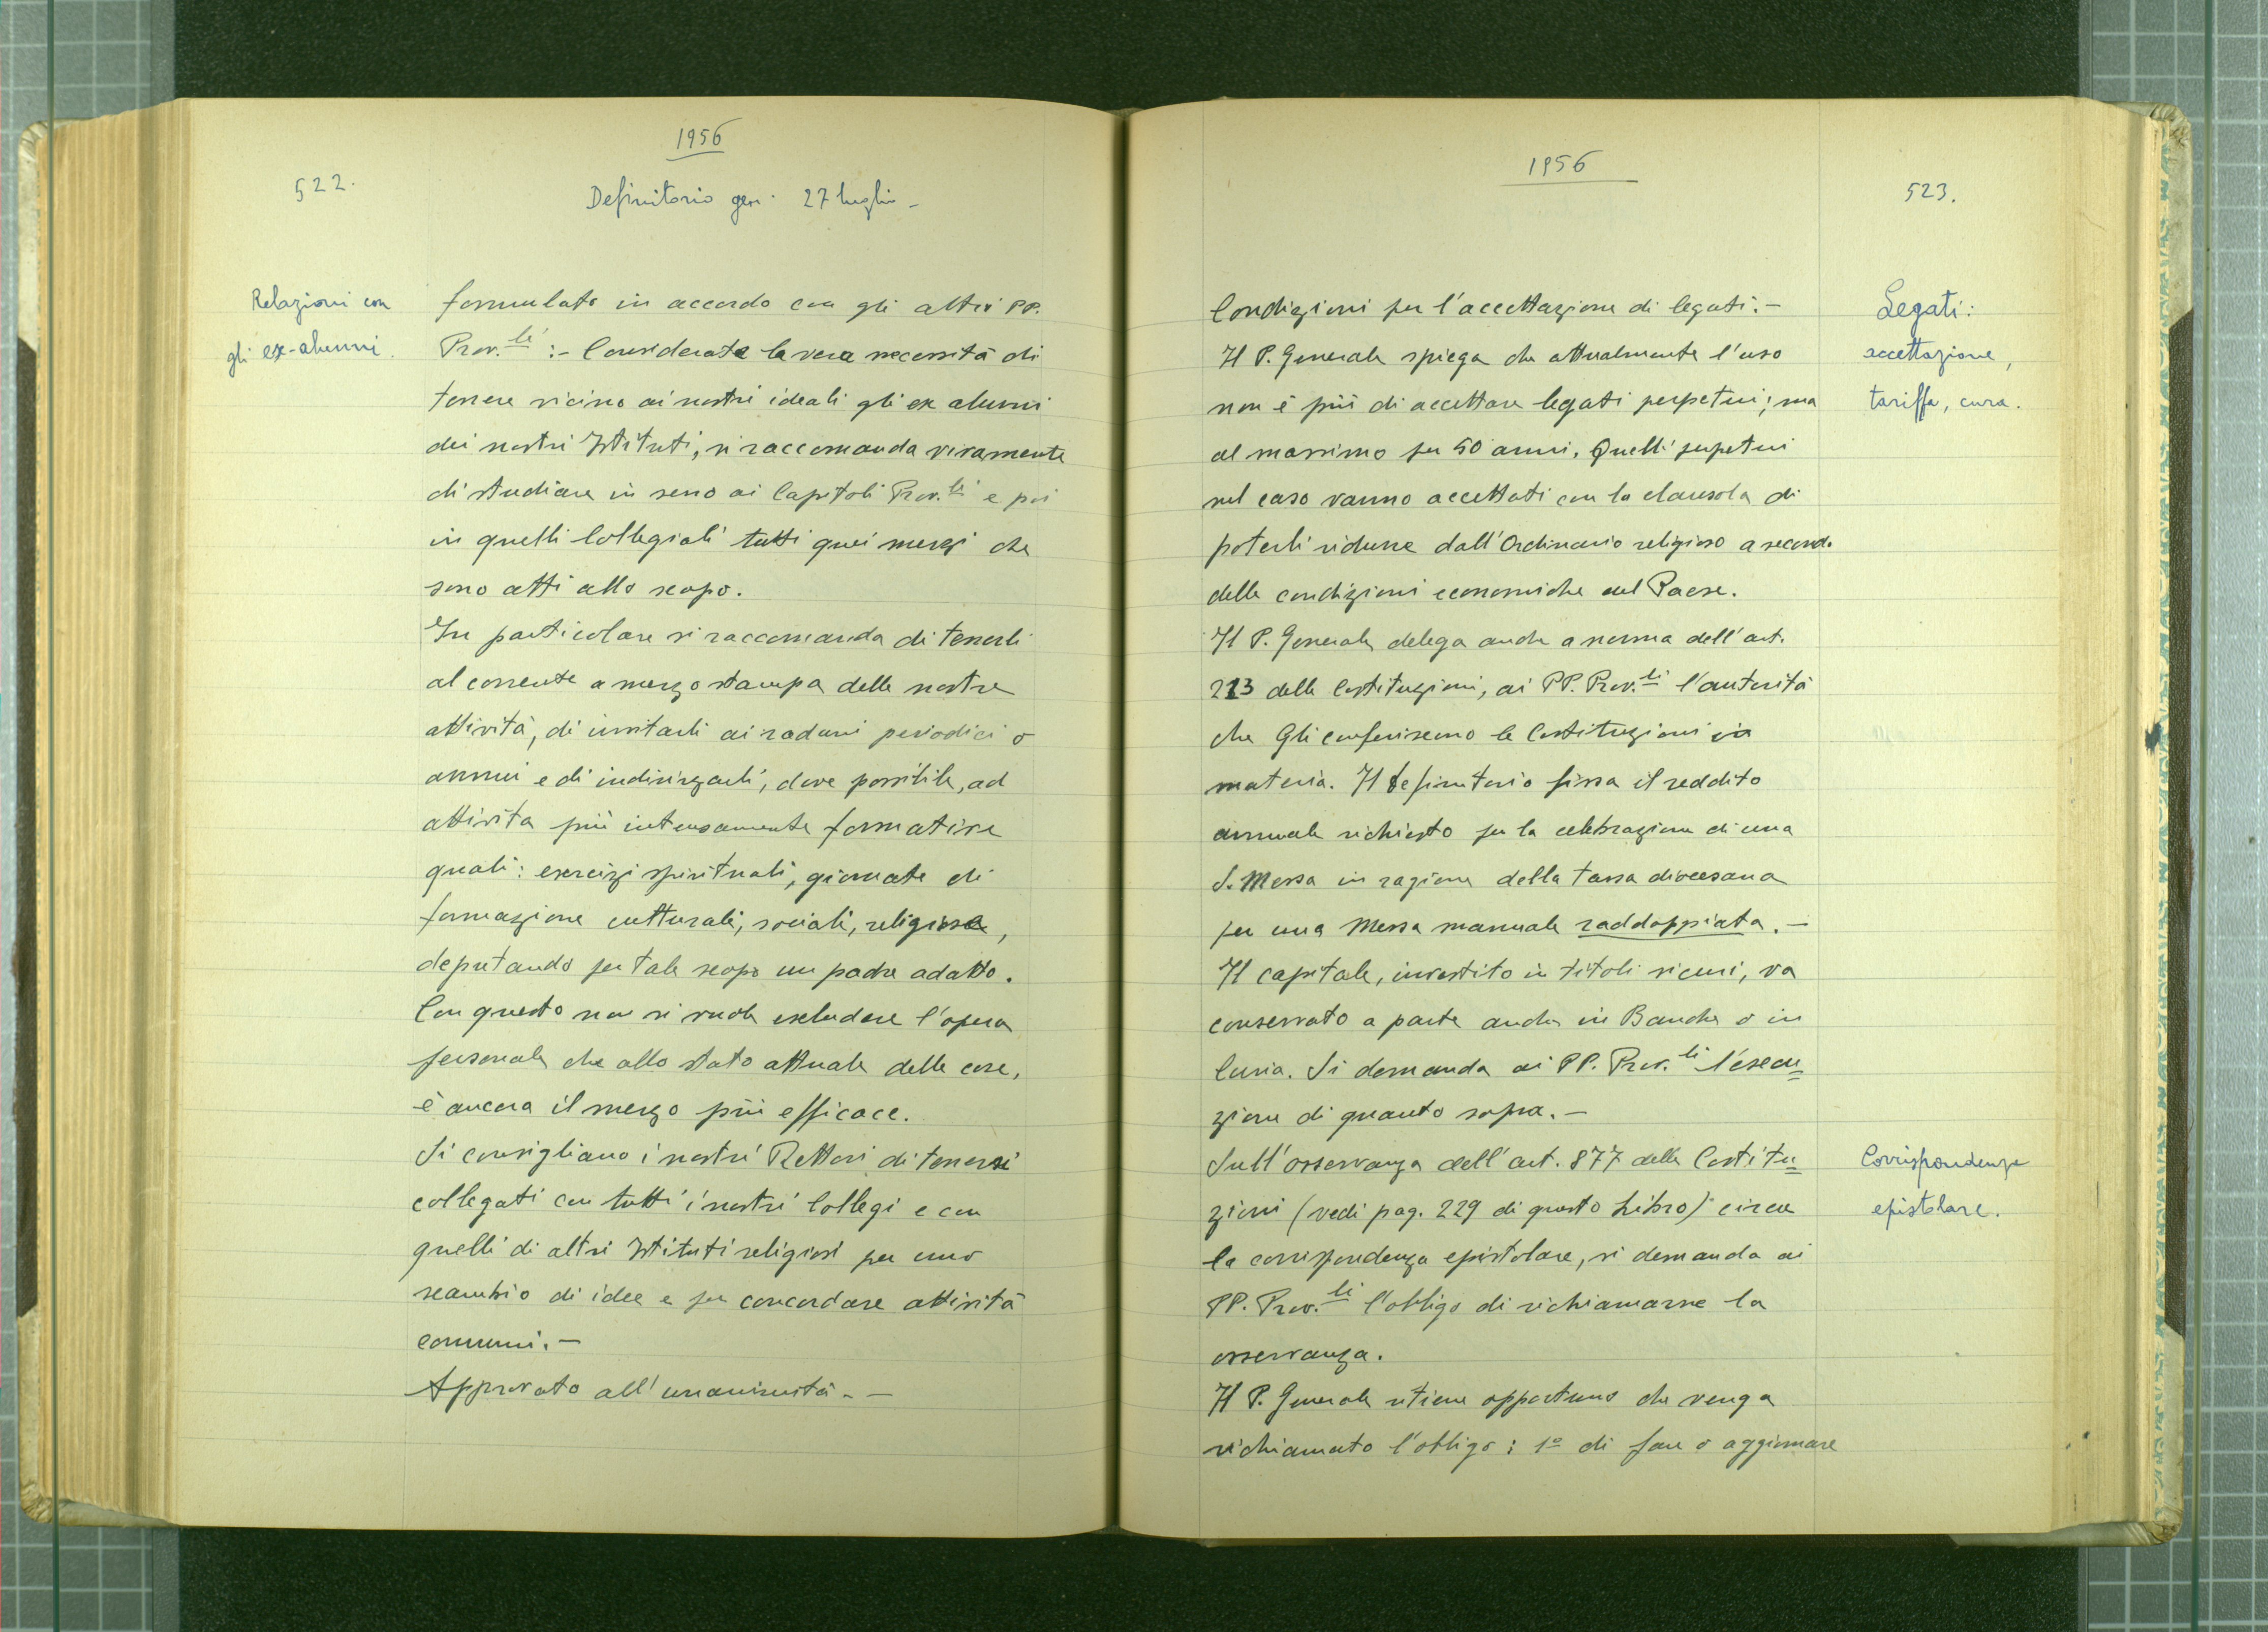 1956
522.
Definitorio gen. 27 luglio -
Relazioni con
gli ex-alunni.
formulato in accordo con gli altri PP.
Prov.li :- Considerata la vera necessità di
tenere vicino ai nostri ideali gli ex alunni
dei nostri Istituti, si raccomanda vivamente
di studiare in seno ai Capitoli Prov.li e poi
in quelli Collegiali tutti quei mezzi che
sono atti allo scopo.
In particolare si raccomanda di tenerli
al corrente a mezzo stampa delle nostre
attività, di invitarli ai raduni periodici o
annui e di indirizzarli, dove possibile, ad
attività più intensamente formative
quali: esercizi spirituali, giornate di
formazione culturali, sociali, religiose,
deputando per tale scopo un padre adatto.
Con questo non si vuole escludere l'opera
personale che allo stato attuale delle cose,
è ancora il mezzo più efficace.
Si consigliano i nostri Rettori di tenersi
collegati con tutti i nostri Collegi e con
quelli di altri Istituti religiosi per uno
scambio di idee e per concordare attività
comuni. -
Approvato all'unanimità. -
1956
523.
Condizioni per l'accettazione di legati. -
Il P. Generale spiega che attualmente l'uso
non è più di accettare legati perpetui; ma
al massimo per 50 anni. Quelli perpetui
nel caso vanno accettati con la clausola di
poterli ridurre dall'Ordinario religioso a seconda
delle condizioni economiche del Paese.
Il P. Generale delega anche a norma dell'art.
213 delle Costituzioni, ai PP. Prov.li l'autorità
che Gli conferiscono le Costituzioni in
materia. Il Definitorio fissa il reddito
annuale richiesto per la celebrazione di una
S. Messa in ragione della tassa diocesana
per una Messa manuale raddoppiata. -
Il capitale, investito in titoli sicuri, va
conservato a parte anche in Banche o in
Curia. Si demanda ai PP. Prov.li l'esecu=
zione di quanto sopra. -
Sull'osservanza dell'art. 877 delle Costitu=
zioni (vedi pag. 229 di questo Libro) circa
la corrispondenza epistolare, si demanda ai
PP. Prov.li l'obbligo di richiamarne la
osservanza.
Il P. Generale ritiene opportuno che venga
richiamato l'obbligo: 1º di fare o aggiornare
Legati:
accettazione,
tariffa, cura.
Corrispondenza
epistolare.